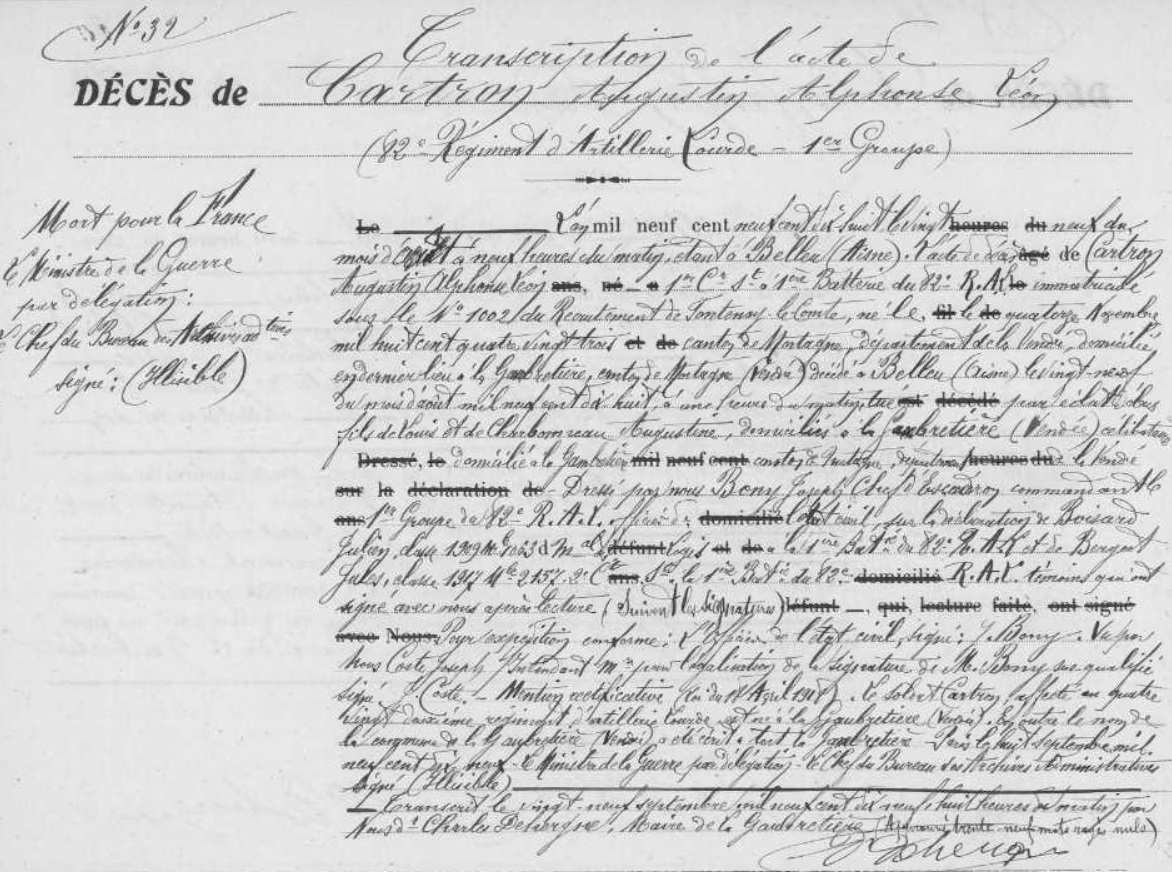 N° 32
Transcription de l'acte de
DÉCÈS de Cartron Augustin Alphonse Léon
(82e Régiment d'Artillerie Lourde - 1er Groupe)
Mort pour la France
Le Ministre de la Guerre
par délégation:
Le Chef du Bureau des Archives adtives
signé: (Illisible)
Le L'an mil neuf cent neuf cent dix huit le vingt heures du neuf du
mois d'août à neuf heures du matin, étant à Belleu (Aisne). L'acte de décès âgé de Cartron
Augustin Alphonse Léon ans, né à 1er Cr St à 1ère Batterie du 82e R.A.L. le immatriculé
sous le N° 1002/ du Recrutement de Fontenay le Comte, né le, fil le de quatorze Novembre
mil huit cent quatre vingt trois et de canton de Mortagne, département de la Vendée, domicilié
en dernier lieu à la Gambretière, canton de Mortagne (Vendée) décédé à Belleu (Aisne) le vingt-neuf
du mois d'août mil neuf cent dix huit, à une heure du matin, tué est décédé par éclat d'obus
fils de Louis et de Charbonneau Augustine, domiciliés à la Gaubretière (Vendée) célibataire
Dressé, le domicilié à la Gambretière mil neuf cent canton de Mortagne, département heures du de la Vendée
sur la déclaration de - Dressé par nous Bony Joseph Chef d'Escadron commandant le
ans 1er Groupe du 82e R.A.L. officier de domicilié l'état civil, sur la déclaration de Boisard
Julien, classe 1909 Mle 1063 d Mal défunt logis et de à la 1ère Batie du 82e R.A.L et de Bergeot
Jules, classe 1917 Mle 2157 2e Ct ans, St. la 1ère Batie du 82e domicilié R.A.L. témoins qui ont
signé avec nous après lecture (Suivent les signatures) défunt —, qui, lecture faite, ont signé
avec Nous. Pour expédition conforme: L'Officier de l'état civil, signé: J. Bony. Vu par
Nous Coste Joseph Intendant Mre pour légalisation de la signature de M. Bony sus qualifié
signé J. Coste. - Mention rectificative (Loi du 18 Avril 1918). Le soldat Cartron, affecté au quatre
vingt deuxième régiment d'artillerie lourde, est né à la Gaubretière (Vendée). En outre le nom de
la commune de la Gaubretière (Vendée) a été écrit à tort la Gambretière - Paris le huit septembre mil
neuf cent dix neuf - Le Ministre de la Guerre par délégation - Le Chef du Bureau des Archives Administratives
signé (Illisible)
Transcrit le vingt-neuf septembre mil neuf cent dix neuf, huit heures du matin par
Nous Charles Dehergne, Maire de la Gaubretière (Approuvé trente neuf mots rayés nuls)
Dehergne